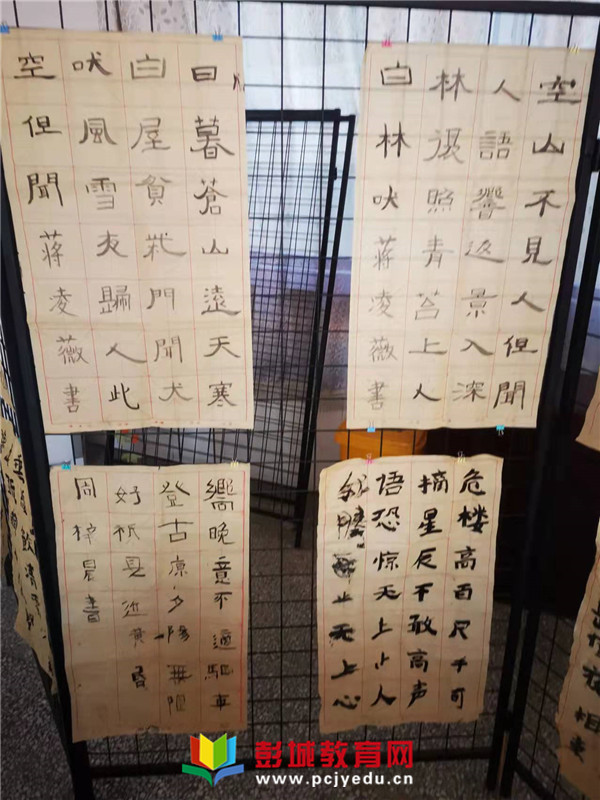 日暮蒼山遠天寒
白屋貧門聞犬
吠風雪夜歸人此
空但聞蔣凌薇書
空山不見人但聞
人語響返景入深
林復照青苔上人
白林吠蔣凌薇書
嚮晚意不適驅車
登古原夕陽無限
好祇是近黃昏
周梓晨書
危楼高百尺手可
摘星辰不敢高声
语恐惊天上止人
止无上心
彭城教育网
www.pcjyedu.cn